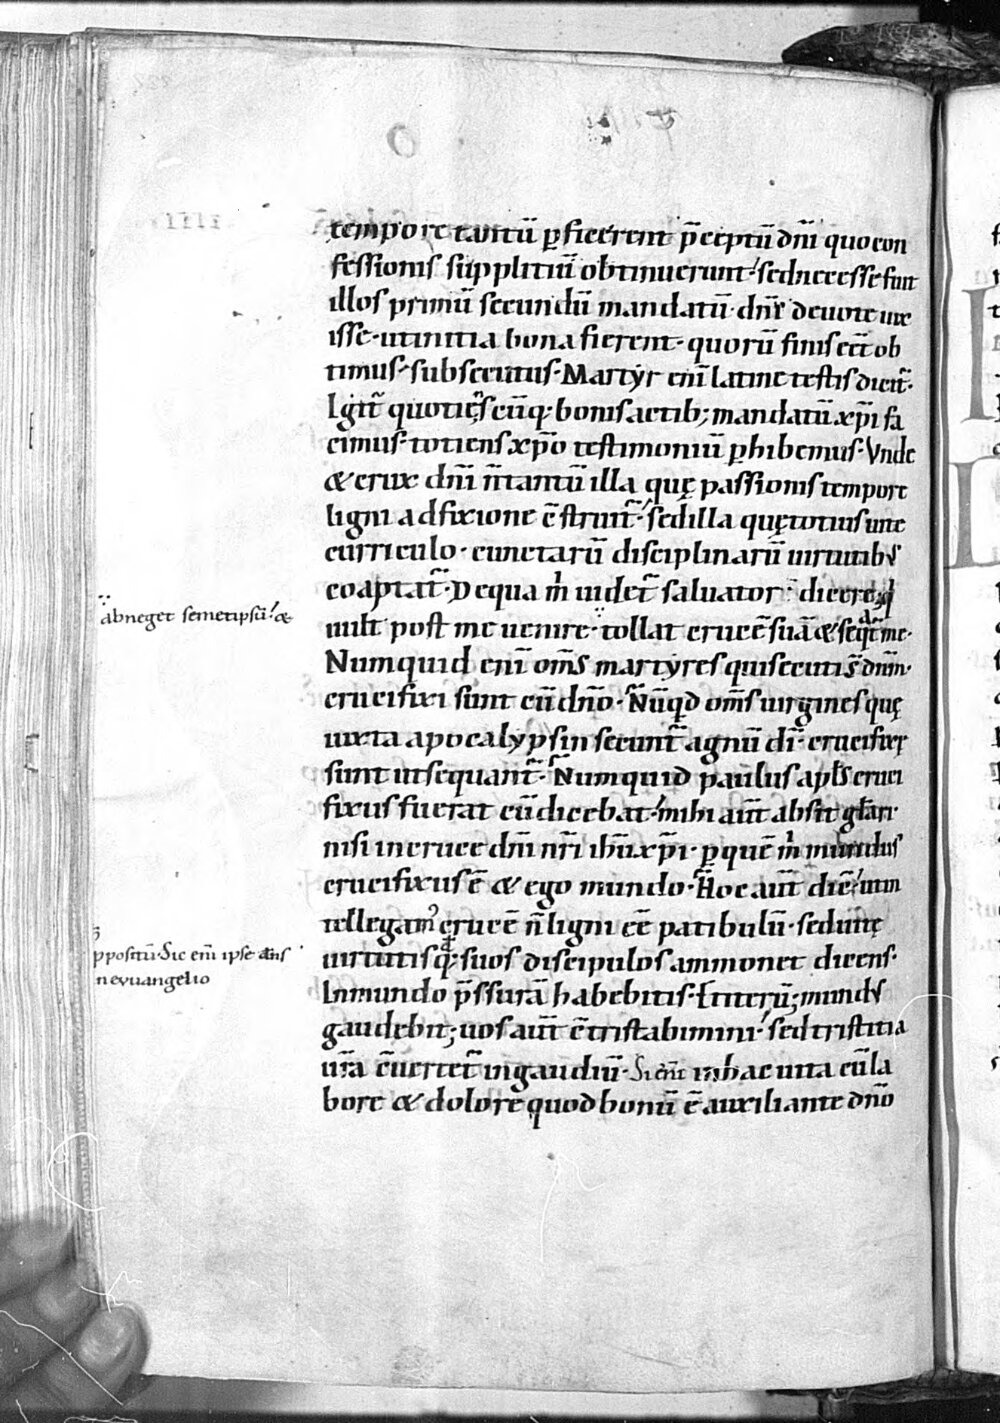 tempore tantū ꝑficerent p̄ceptū dn̄i quo con
fessionis suppliciū obtinuerunt· sed necesse fuit
illos primū secundū mandatū dn̄i deuote uix
isse· ut initia bona fierent· quorū finis ect̄ ob
timus· subsecutus· Martyr eni latine testis dicit̄·
Igit̄ quotiēs cūq; bonis actib; mandatū xp̄i fa
cimus· totiens xp̄o testimoniū ꝑhibemus· Vnde
& crux dn̄i n̄ tantū illa quę passionis tempore
ligni adfixione ē struit̄· sed illa quę totius uite
curriculo· cunctarū disciplinarū uirtutibs
coaptat̄· De qua m̄ uidet̄ saluator dicere· qi
uult post me uenire· tollat crucē suā & seqt̄ me·
abneget semetipsū· &
Numquid eni om̄s martyres qui secuti s̄ dnm̄·
crucifixi sunt cū dn̄o· Nūqd om̄s uirgines quę
iuxta apocalypsin secunt̄ agnū di· crucifixę
sunt ut sequant̄· Numquid paulus apl̄s cruci
fixus fuerat cū dicebat· mihi aūt absit glari
nisi in cruce dn̄i nr̄i ih̄u xp̄i· ꝑ quē m̄ mundus
crucifixus ē & ego mundo· Hoc aūt dic̄· ut in
tellegam' crucē n̄ ligni eē patibulū· sed uitę
uirtutisq; suos discipulos ammonet dicens·
ppositū· Sic eni ipse dn̄s
n evuangelio
In mundo p̄ssurā habebitis· Et iterū; mundus
gaudebit; uos aūt c̄tristabimini· sed tristitia
ur̄a c̄uertet̄ in gaudiū· Si enī in hac uita cū la
bore & dolore quod bonū ē auxiliante dn̄o